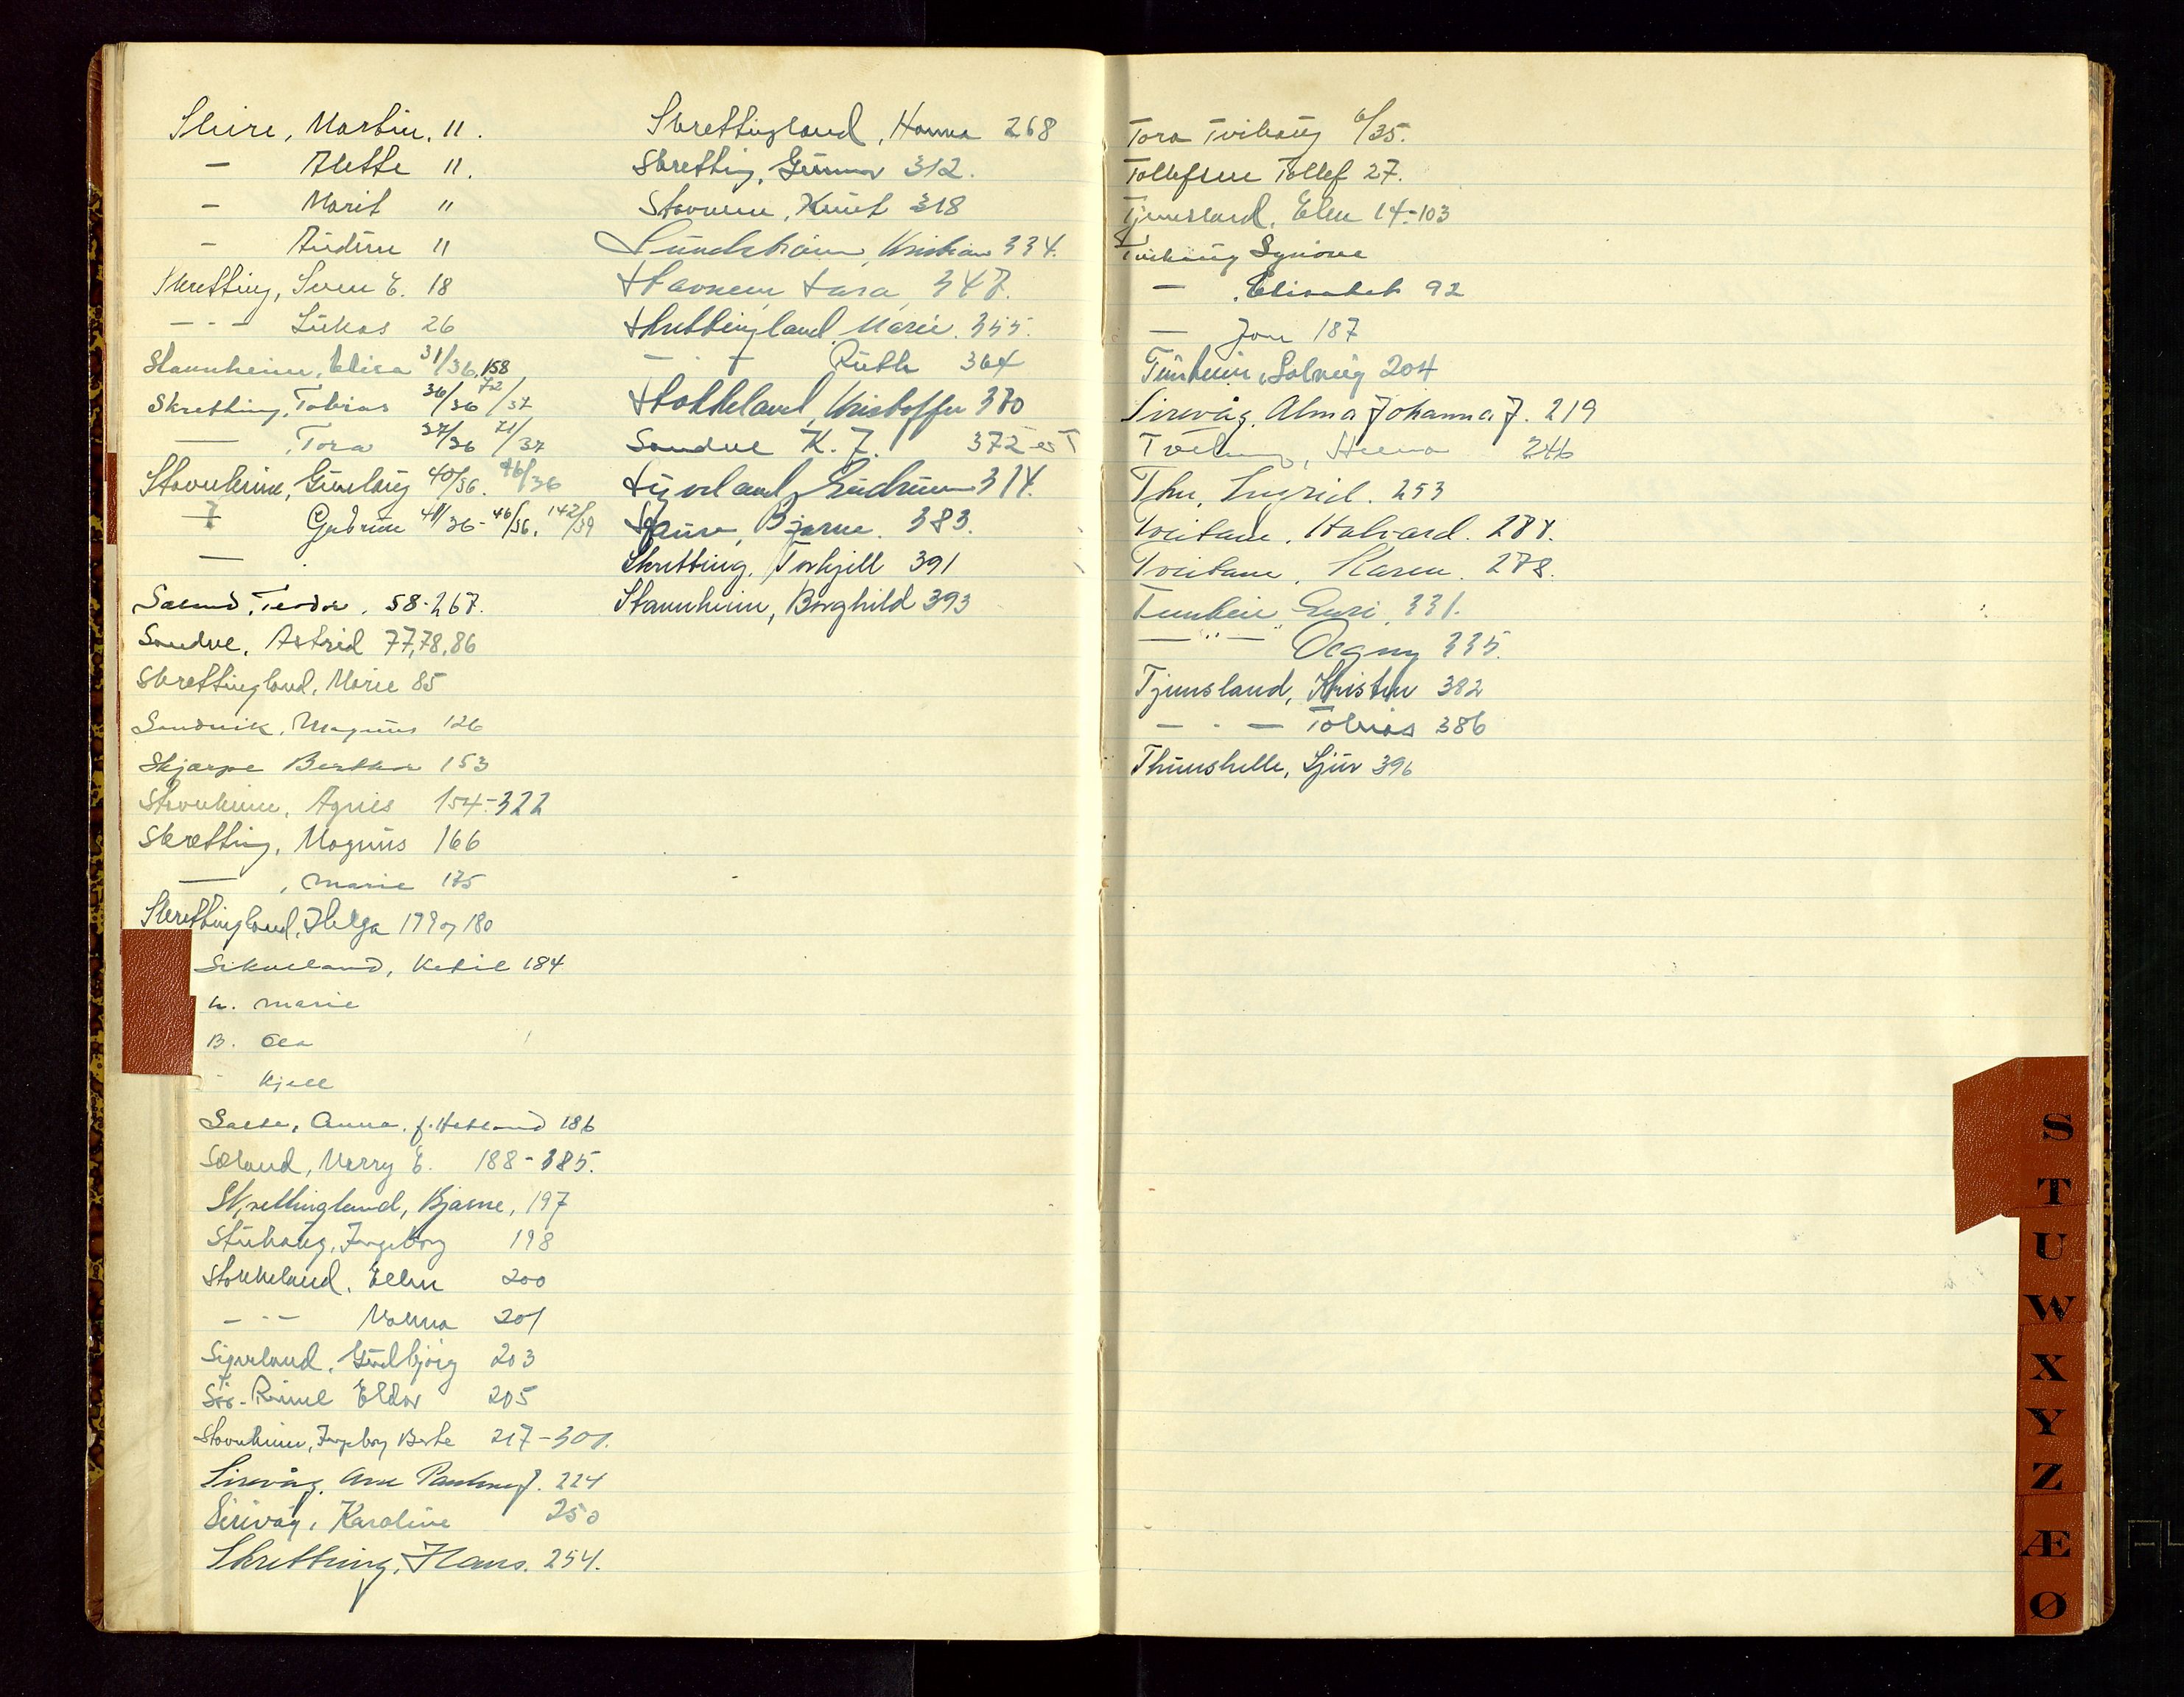 Skire, Martin, 11.
— Alette 11.
— Marit "
— Audun 11
Skretting, Sven E. 18
— - — Lukas 26
Stannheim, Elisa 31/36, 158
Skretting, Tobias 36/36 72/37
— , Tora 37/36 71/37
Stavnheim, Gunlaug 40/36. 46/36
— Gudrun 41/36 - 46/36, 142/39
—
Sæland, Teodor, 58-267.
Sandve, Astrid 77,78,86
Skrettingland, Marie 85
Sandvik, Magnus 126
Skjærpe Berthar 153
Stavnheim, Agnes 154-322
Skretting, Magnus 166
— , Marie 175
Skrettingland, Helga 179 og 180
Sikveland, Ketil 184
h. Marie
B. Ola
" Kjell
Salte, Anna, f. Hetland 186
Sæland, Merry E. 188-385.
Skrettingland, Bjarne, 197
Stuhaug, Ingeborg 198
Stokkeland, Ellen 200
— - — Valma 201
Sigveland, Gudbjørg 203
Sør-Rime Eldar 205
Stavnheim, Ingeborg Berte 217-301.
Sirevåg, Ane J. 224
Sirivåg, Karoline 250
Skretting, Hans. 254.
Skrettingland, Hanna 268
Skretting, Gunnar 312.
Stavnem, Knut 318
Sundstrøm, Kristian 334.
Stavnem, Sara, 347.
Skrettingland, Marie. 355.
— - — Ruth 364
Stokkeland, Kristoffer 370
Sandve K. J. 372
Syvland, Gudrun 374.
Skaure, Bjarne. 383.
Skretting, Torkjell 391
Stannheim, Borghild 393
Tora Tvihaug 6/35.
Tollefsen Tollef 27.
Tjemsland, Elen 14-103
Tvihaug Synøve
— , Elisabet 92
— Jon 187
Tunheim, Solveig 204
Sirevåg, Alma Johanna J. 219
246
Thu, Ingrid. 253
Tveitane, Halvard. 287.
Tveitane, Karen. 278.
Tunheim, Guri, 331.
— " — Dagny 335.
Tjemsland, Kristen 382
— - — Tobias 386
Thunshelle, Sjur 396
S
T
U
W
X
Y
Z
Æ
Ø